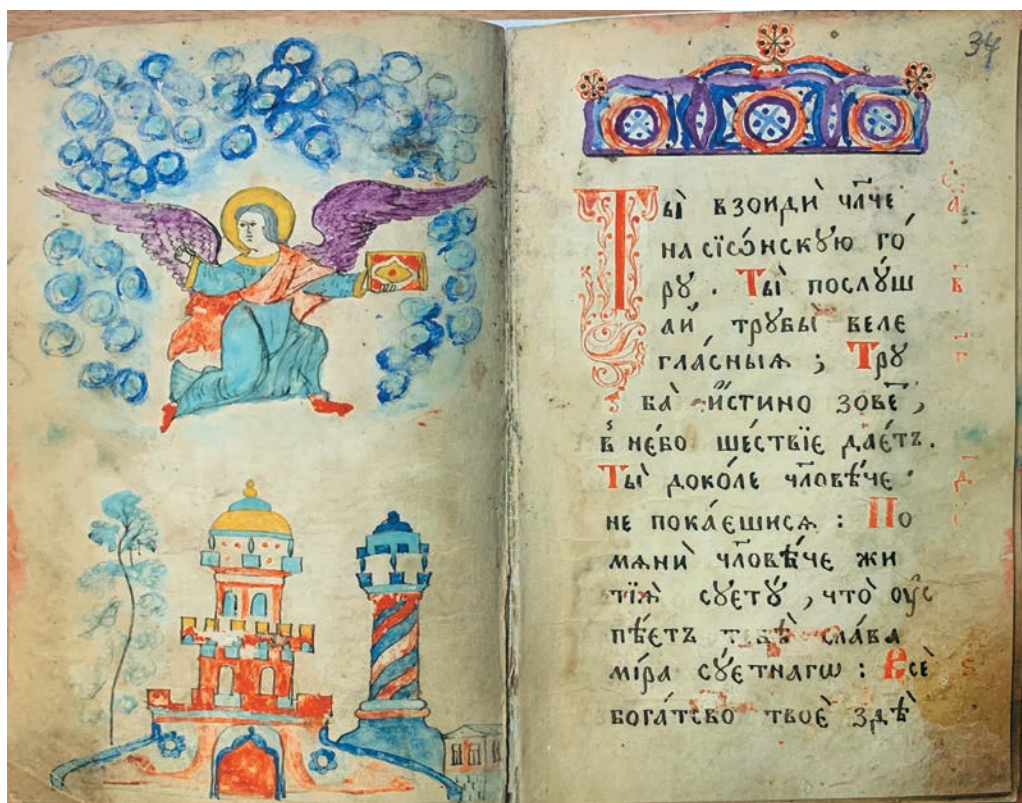 34
Ты̀ взоиди̇̀ чл҃че
на сїѡ́нскꙋю го́
рꙋ . Ты̀ послꙋ́ш
аи̇̀ трꙋбы̀ веле
гла́сныѧ ; Трꙋ
ба̀ и҆́стино зове҃ ,
в̾ не́бо ше́ствїе дае́тъ .
Ты̀ доко́ле чл҃овѣ́че
не пока́ешисѧ : По
мѧни̇̀ чл҃овѣ́че жи
тїѧ̀ сꙋетꙋ̀ , что̀ оу҆с
пѣ́етъ тебѣ̀ сла́ва
мі́ра сꙋ́етнагѡ : Всѐ
бога́тсво твоѐ здѣ̀